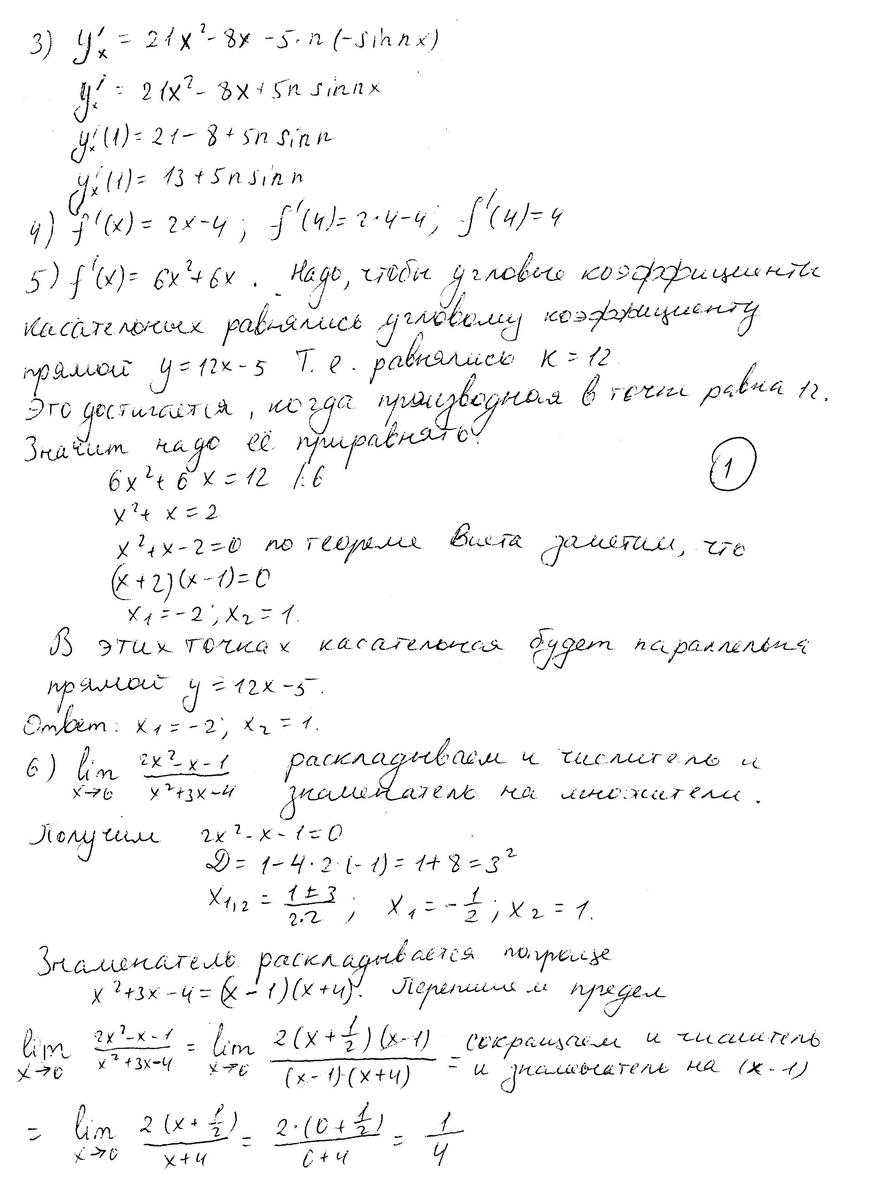 3) y'ₓ = 21x² - 8x - 5·n (-sin nx)
y'ₓ = 21x² - 8x + 5n sin nx
y'ₓ(1) = 21 - 8 + 5n sin n
y'ₓ(1) = 13 + 5n sin n
4) f'(x) = 2x - 4 ; f'(4) = 2·4 - 4 ; f'(4) = 4
5) f'(x) = 6x² + 6x . Надо, чтобы угловые коэффициенты
касательных равнялись угловому коэффициенту
прямой y = 12x - 5 Т. е. равнялись k = 12.
Это достигается, когда производная в точке равна 12.
Значит надо её приравнять.
6x² + 6x = 12 /:6
x² + x = 2
①
x² + x - 2 = 0 по теореме Виета заметим, что
(x+2)(x-1) = 0
x₁ = -2 ; x₂ = 1.
В этих точках касательная будет параллельна
прямой y = 12x - 5.
Ответ: x₁ = -2 ; x₂ = 1.
6) lim x→0 (2x² - x - 1)/(x² + 3x - 4) раскладываем и числитель и
знаменатель на множители.
Получим 2x² - x - 1 = 0
D = 1 - 4·2·(-1) = 1 + 8 = 3²
x₁,₂ = (1 ± 3)/(2·2) ; x₁ = -1/2 ; x₂ = 1.
Знаменатель раскладывается попроще
x² + 3x - 4 = (x - 1)(x + 4). Перепишем предел
lim x→0 (2x² - x - 1)/(x² + 3x - 4) = lim x→0 (2(x + 1/2)(x - 1))/((x - 1)·(x + 4)) = сокращаем и числитель
и знаменатель на (x - 1)
= lim x→0 (2(x + 1/2))/(x + 4) = (2·(0 + 1/2))/(0 + 4) = 1/4